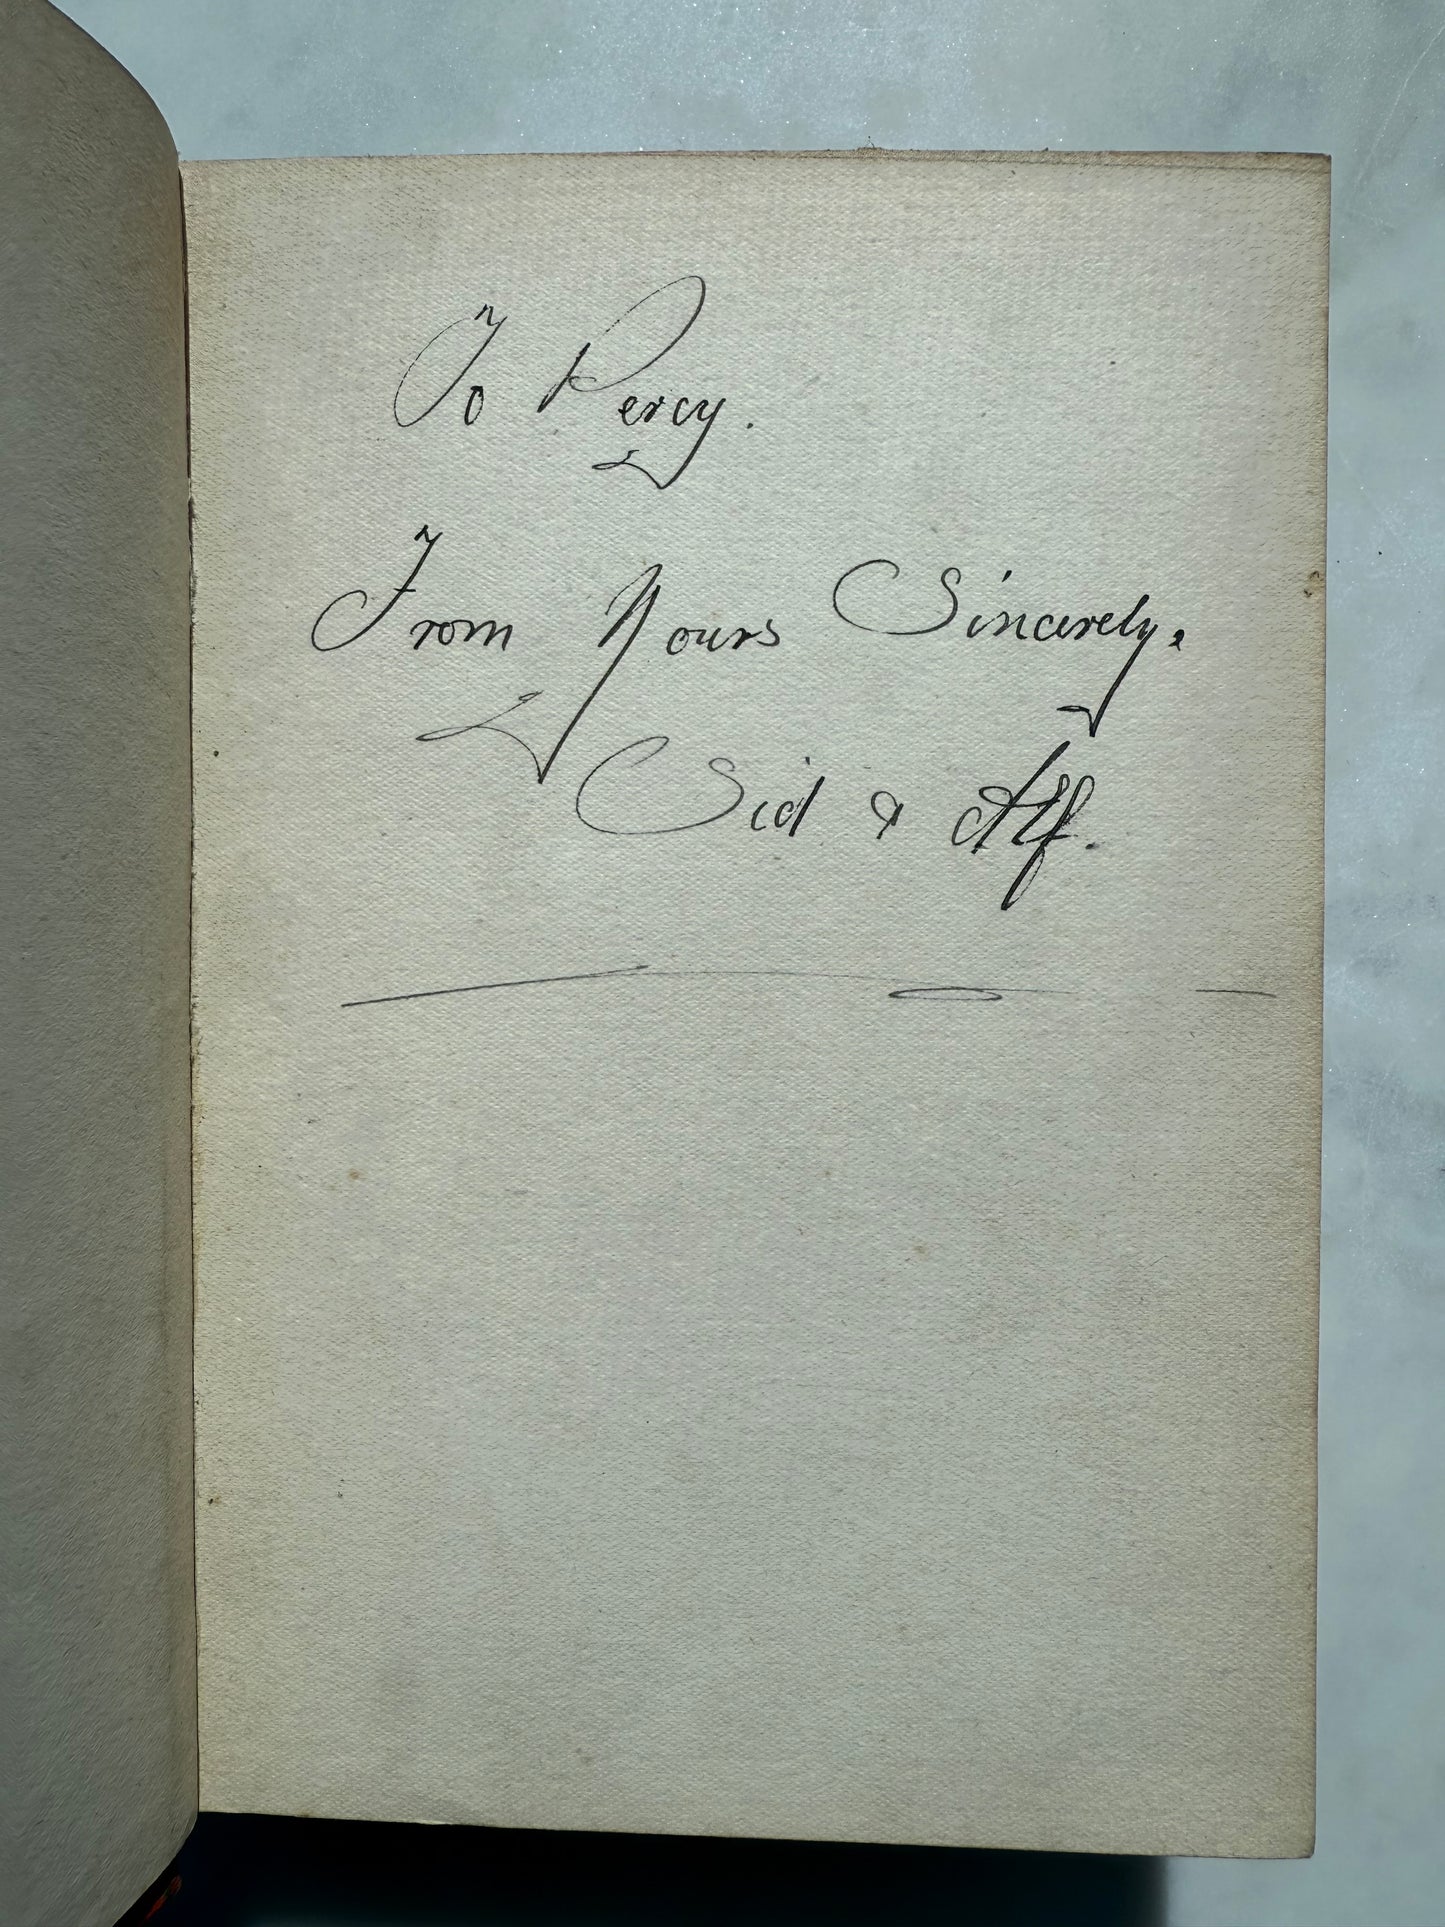 To Percy.
From Yours Sincerely,
Sid & Alf.